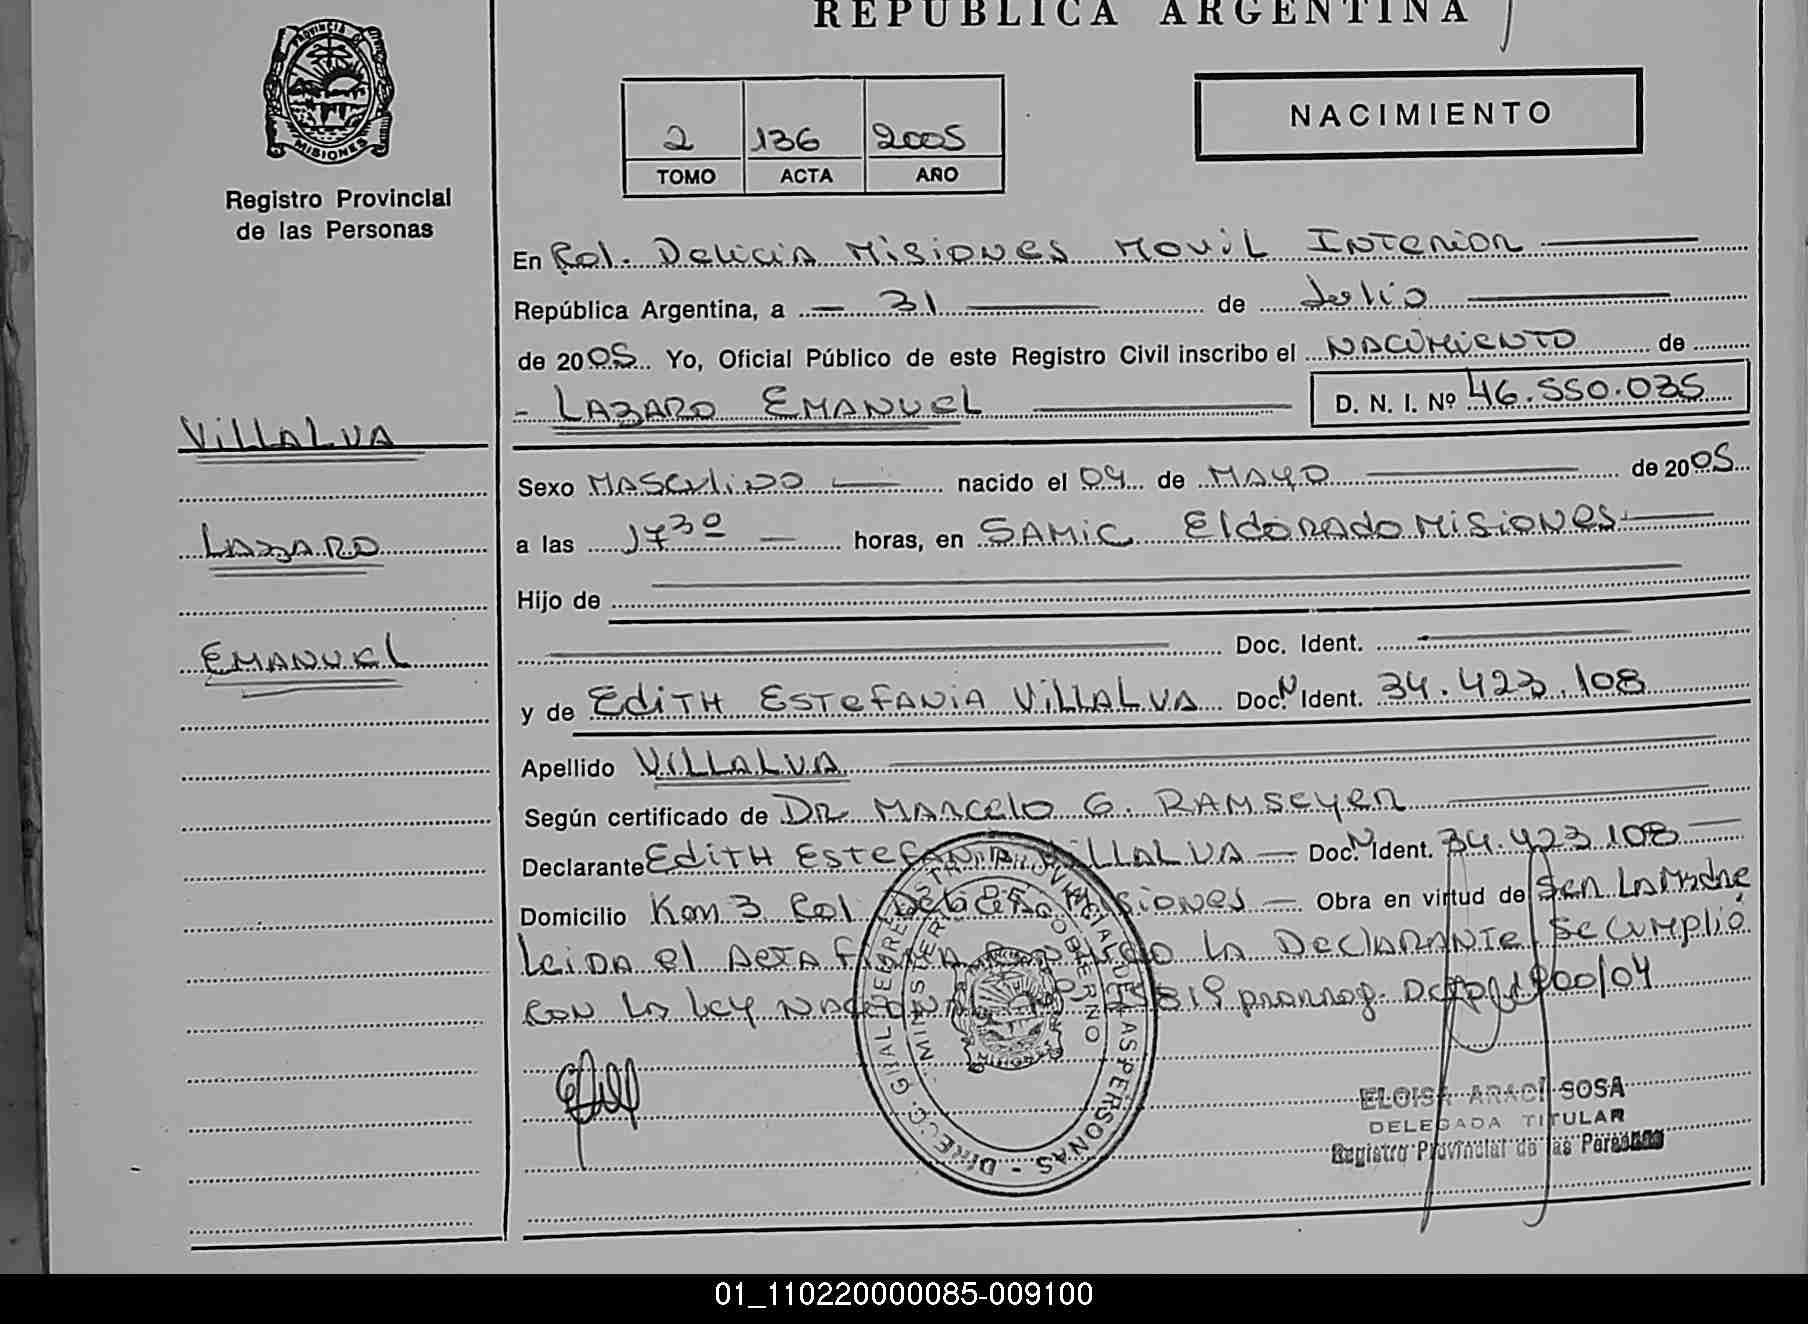 REPUBLICA ARGENTINA
PROVINCIA DE
MISIONES
Registro Provincial
de las Personas
2 136 2005
TOMO ACTA AÑO
NACIMIENTO
En Col. Delicia Misiones Movil Interior
República Argentina, a - 31 de Julio
de 2005 Yo, Oficial Público de este Registro Civil inscribo el NACIMIENTO de
- LAZARO EMANUEL D. N. I. Nº 46.550.035
VILLALVA
LAZARO
EMANUEL
Sexo MASCULINO nacido el 04 de MAYO de 2005
a las 17 30 horas, en SAMIC Eldorado Misiones
Hijo de
Doc. Ident.
y de Edith Estefania Villalva Doc. N Ident. 34.423.108
Apellido VILLALVA
Según certificado de DR Marcelo G. Ramseyer
Declarante Edith Estefania Villalva Doc. N Ident. 34.423.108
Domicilio Km 3 Col Delicia Misiones Obra en virtud de Ser La Madre
Leida el Acta firma la Declarante Se cumplió
con la Ley 819 prorrog. 1900/04
DIRECC. GRAL. DE REGISTRO PROVINCIAL DE LAS PERSONAS
MINISTERIO DE GOBIERNO
ELOISA ARACI SOSA
DELEGADA TITULAR
Registro Provincial de las Personas
01_110220000085-009100